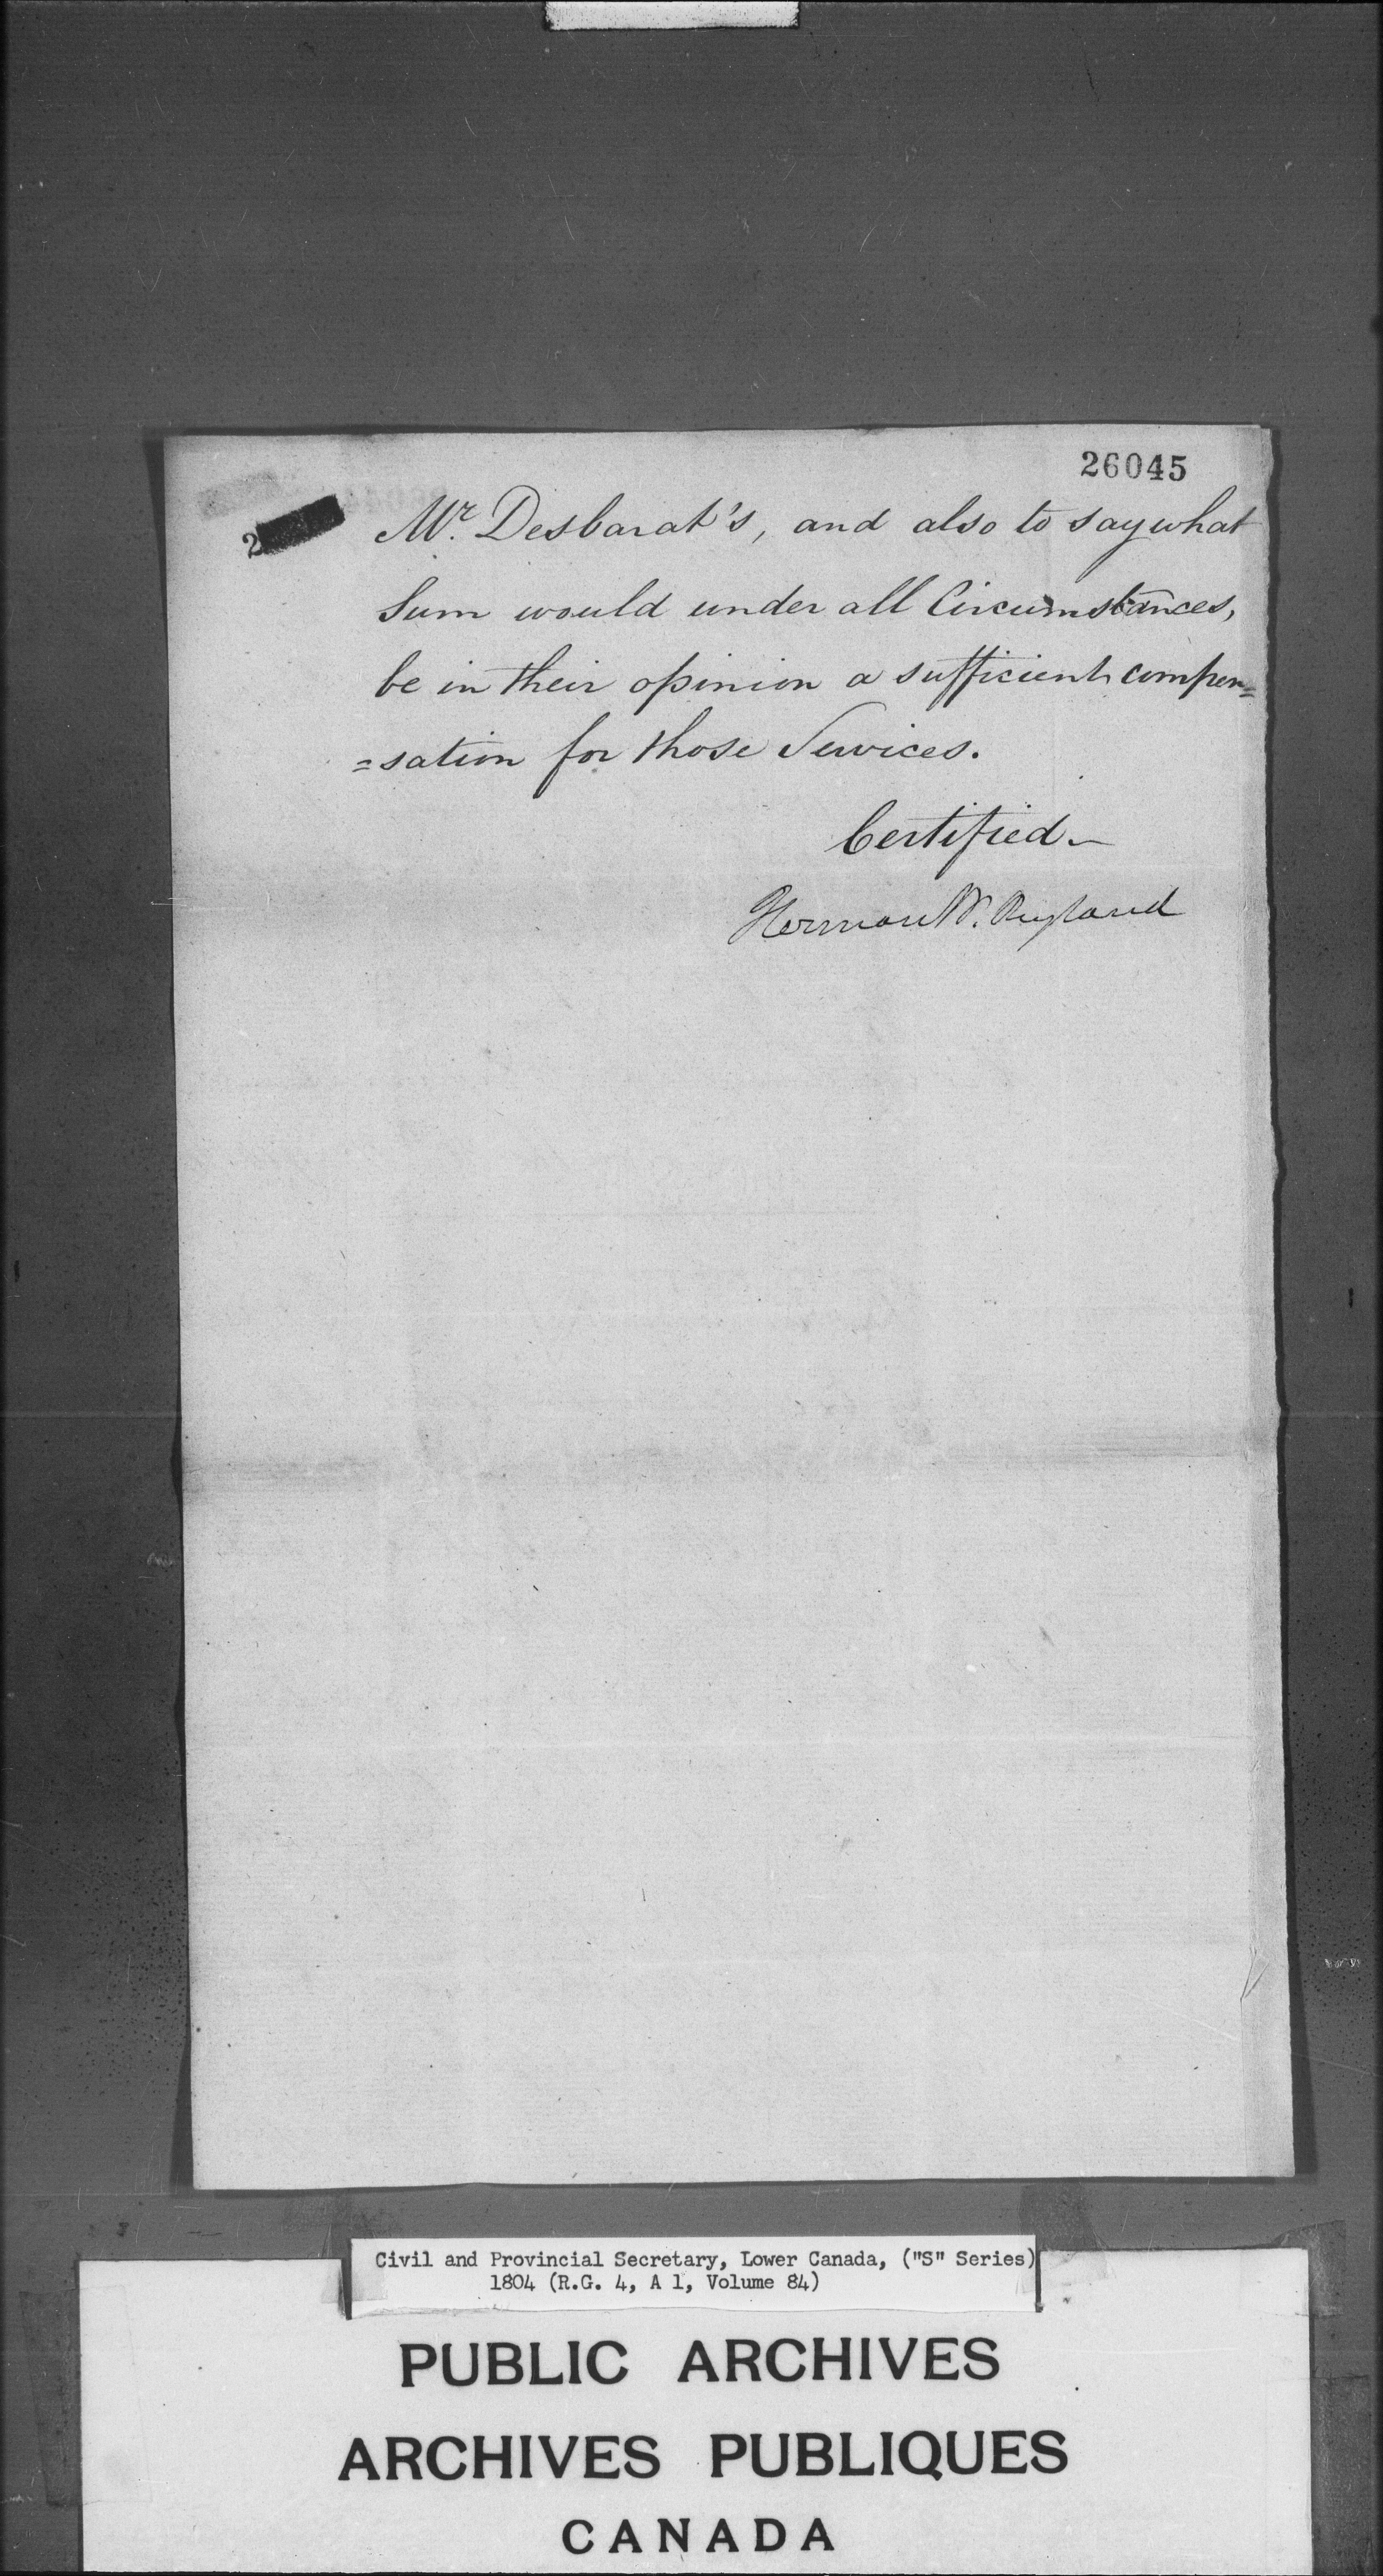 26045
2
Mr. Desbarat's, and also to say what
Sum would under all Circumstances,
be in their opinion a sufficient compen=
=sation for those Services.
Certified-
Herman W. Ryland
Civil and Provincial Secretary, Lower Canada, ("S" Series)
1804 (R.G. 4, A 1, Volume 84)
PUBLIC ARCHIVES
ARCHIVES PUBLIQUES
CANADA